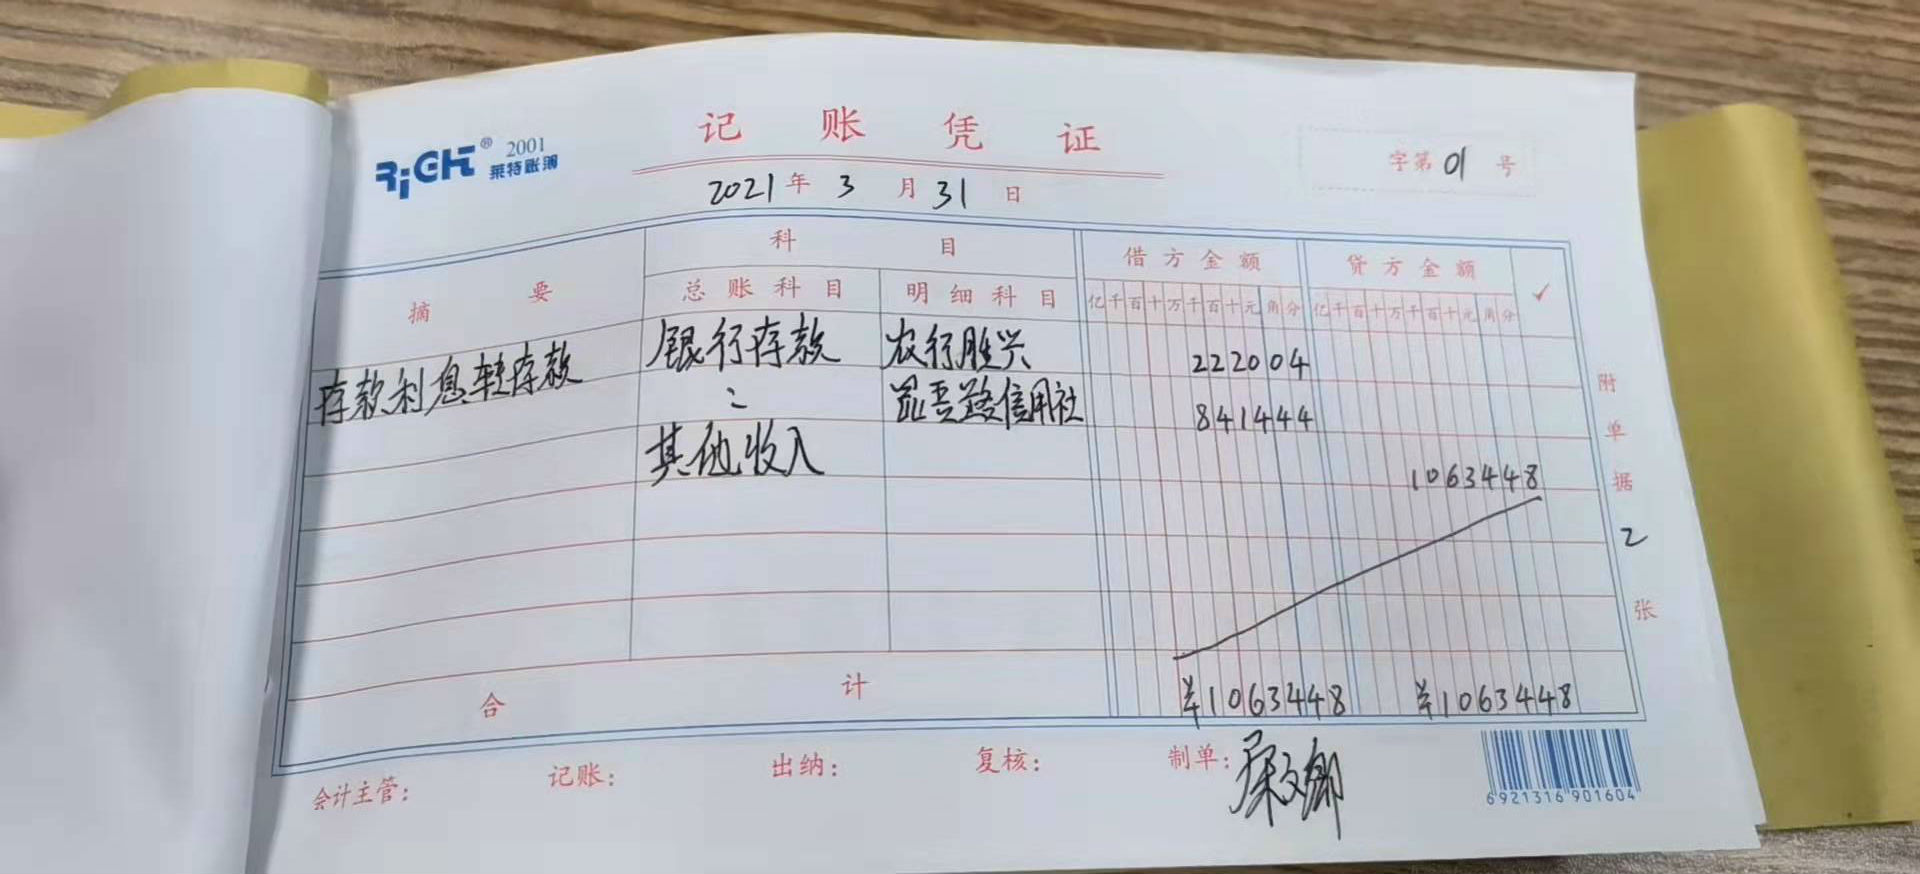 RiGHT® 2001
莱特账簿
记账凭证
2021年3月31日
字第01号
摘要
科目
借方金额
贷方金额
✓
总账科目
明细科目
亿千百十万千百十元角分
亿千百十万千百十元角分
存款利息转存款
银行存款
农行胜兴
222004
信用社
841444
其他收入
1063448
附单据2张
合计
¥1063448
¥1063448
会计主管:
记账:
出纳:
复核:
制单:
6921316901604